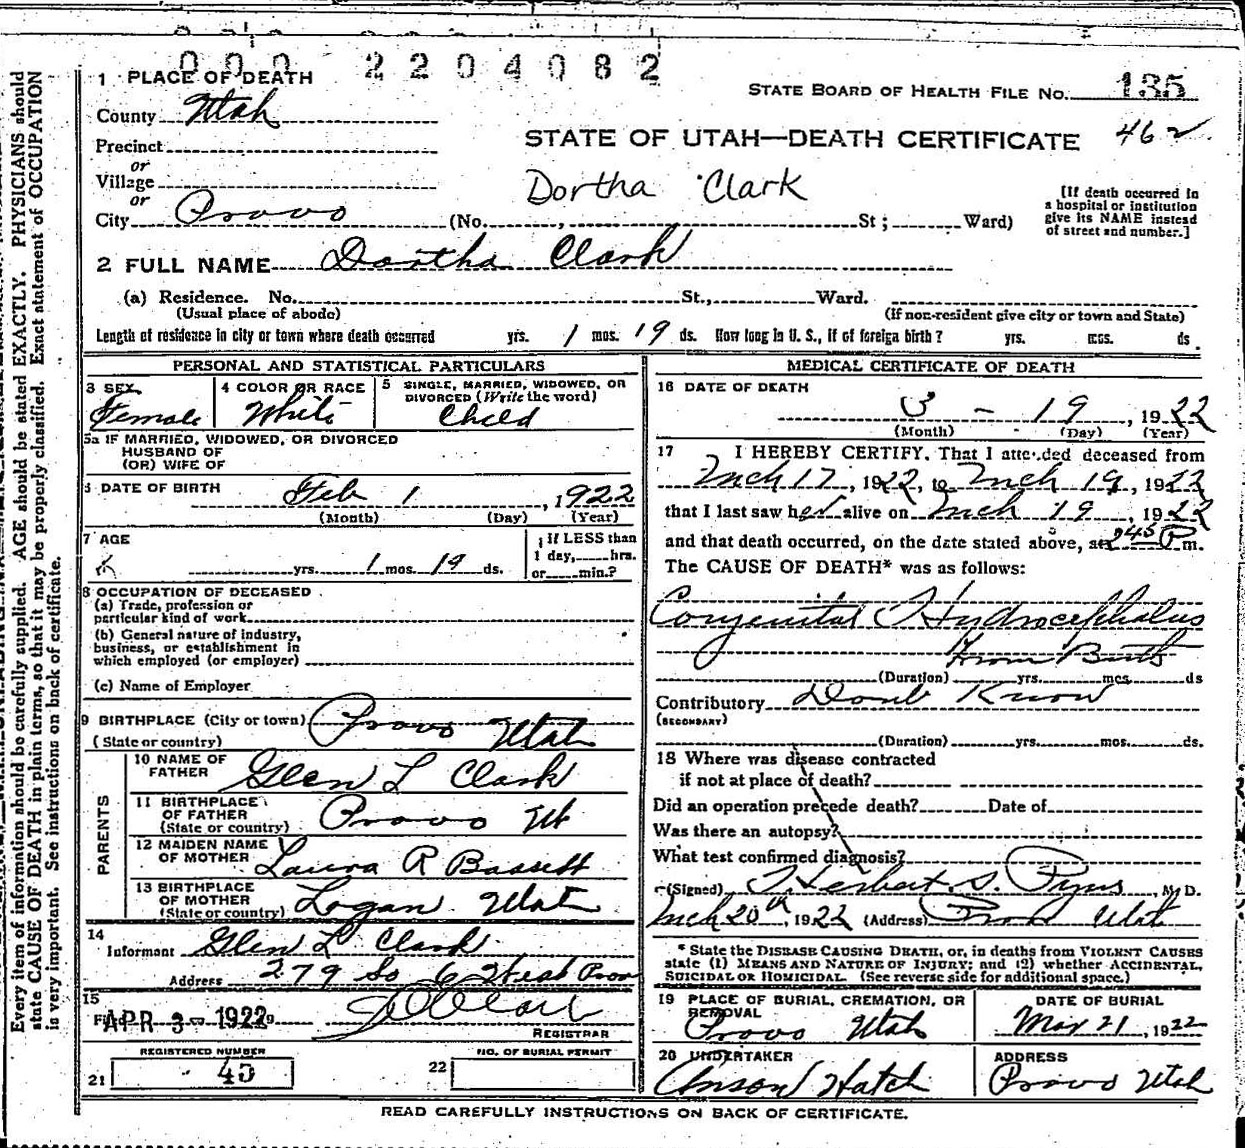 0 0 0 2 2 0 4 0 8 2
1 PLACE OF DEATH
STATE BOARD OF HEALTH FILE No. 135
County Utah
STATE OF UTAH—DEATH CERTIFICATE 462
Precinct
or
Village
Dortha Clark
[If death occurred in
a hospital or institution
give its NAME instead
of street and number.]
or
City Provo (No. , St ; Ward)
2 FULL NAME Dortha Clark
(a) Residence. No. St., Ward.
(Usual place of abode) (If non-resident give city or town and State)
Length of residence in city or town where death occurred yrs. 1 mos. 19 ds. How long in U. S., if of foreign birth? yrs. mos. ds.
PERSONAL AND STATISTICAL PARTICULARS
3 SEX 4 COLOR OR RACE 5 SINGLE, MARRIED, WIDOWED, OR
DIVORCED (Write the word)
Female White Child
5a IF MARRIED, WIDOWED, OR DIVORCED
HUSBAND OF
(OR) WIFE OF
6 DATE OF BIRTH Feb 1, 1922
(Month) (Day) (Year)
7 AGE If LESS than
1 day, hrs.
yrs. 1 mos. 19 ds. or min.?
8 OCCUPATION OF DECEASED
(a) Trade, profession or
particular kind of work
(b) General nature of industry,
business, or establishment in
which employed (or employer)
(c) Name of Employer
9 BIRTHPLACE (City or town) Provo Utah
(State or country)
PARENTS
10 NAME OF
FATHER Glen L Clark
11 BIRTHPLACE
OF FATHER
(State or country) Provo Ut
12 MAIDEN NAME
OF MOTHER Laura R Bassett
13 BIRTHPLACE
OF MOTHER
(State or country) Logan Utah
14
Informant Glen L Clark
Address 279 So 6 West Provo
15
APR 3- 1922
REGISTRAR
REGISTERED NUMBER NO. OF BURIAL PERMIT
21 45 22
MEDICAL CERTIFICATE OF DEATH
16 DATE OF DEATH
3 - 19, 1922
(Month) (Day) (Year)
17 I HEREBY CERTIFY, That I attended deceased from
Mch 17, 1922, to Mch 19, 1922
that I last saw her alive on Mch 19, 1922
and that death occurred, on the date stated above, at 245 P m.
The CAUSE OF DEATH* was as follows:
Congenital Hydrocephalus
From Birth
(Duration) yrs. mos. ds
Contributory Dont Know
(SECONDARY)
(Duration) yrs. mos. ds.
18 Where was disease contracted
if not at place of death?
Did an operation precede death? Date of
Was there an autopsy?
What test confirmed diagnosis?
(Signed) Herbert S. Pyne, M. D.
Mch 20th, 1922 (Address) Provo Utah
* State the DISEASE CAUSING DEATH, or, in deaths from VIOLENT CAUSES
state (1) MEANS AND NATURE OF INJURY; and (2) whether ACCIDENTAL,
SUICIDAL OR HOMICIDAL. (See reverse side for additional space.)
19 PLACE OF BURIAL, CREMATION, OR
REMOVAL
Provo Utah
DATE OF BURIAL
Mar 21, 1922
20 UNDERTAKER
Anson Hatch
ADDRESS
Provo Utah
READ CAREFULLY INSTRUCTIONS ON BACK OF CERTIFICATE.
Every item of information should be carefully supplied. AGE should be stated EXACTLY. PHYSICIANS should
state CAUSE OF DEATH in plain terms, so that it may be properly classified. Exact statement of OCCUPATION
is very important. See instructions on back of certificate.